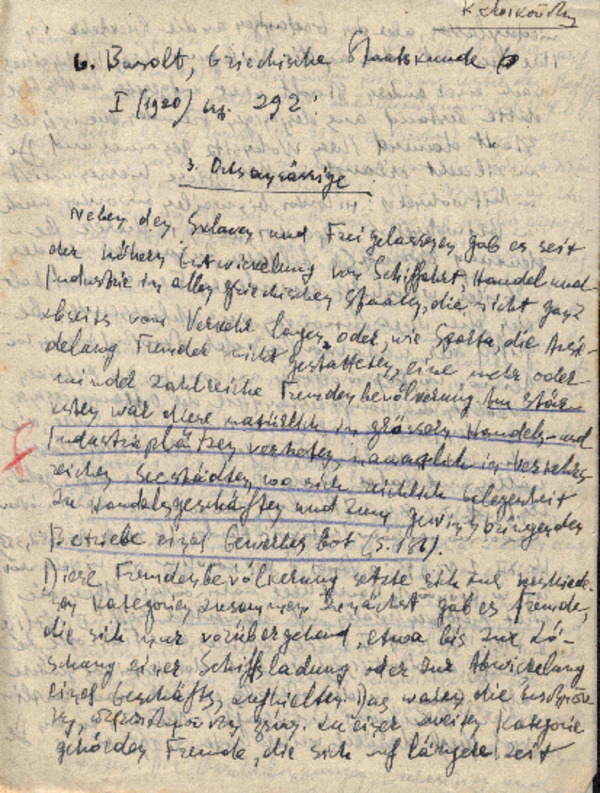 G. Busolt, Griechische Staatskunde
I (1920) 292:
3. Ortsansässige
Neben den Sklaven und Freigelassenen gab es seit
der höhern Entwickelung von Schiffahrt, Handel und
Industrie in allen griechischen Staaten, die nicht ganz
abseits vom Verkehr lagen, oder, wie Sparta, die Ansie-
delung Fremder nicht gestatteten, eine mehr oder
minder zahlreiche Fremdenbevölkerung. Am stär-
ksten war diese natürlich in grössern Handels- und
Industrieplätzen vertreten, namentlich in verkehrs-
reichen Seestädten, wo sich reichlich Gelegenheit
zu Handelsgeschäften und zum gewinnbringenden
Betriebe eines Gewerbes bot (S. 186).
Diese Fremdenbevölkerung setzte sich aus verschiede-
nen Kategorien zusammen. Zunächst gab es Fremde,
die sich nur vorübergehend, etwa bis zur Lö-
schung einer Schiffsladung oder zur Abwickelung
eines Geschäfts, aufhielten. Das waren die
Zu einer zweiten Kategorie
gehörden Fremde, die sich auf längere Zeit